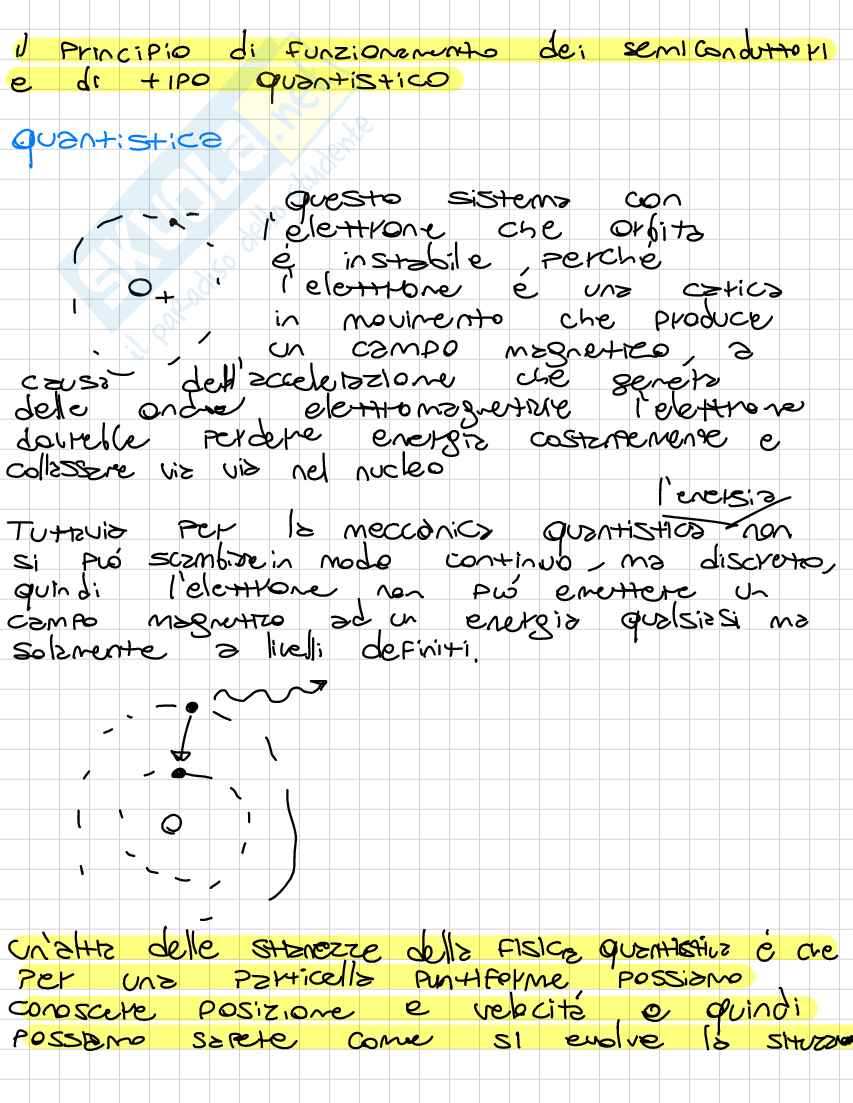 il principio di funzionamento dei semiconduttori
e di tipo quantistico
quantistica
questo sistema con
l'elettrone che orbita
é instabile perché
l'elettrone é una carica
in movimento che produce
un campo magnetico, a
causa dell'accelerazione che genera
delle onde elettromagnetiche l'elettrone
dovrebbe perdere energia costantemente e
collassare via via nel nucleo
l'energia
Tuttavia per la meccanica quantistica non
si puó scambiare in modo continuo, ma discreto,
quindi l'elettrone non puó emettere un
campo magnetico ad un energia qualsiasi ma
solamente a livelli definiti.
un'altra delle stranezze della fisica quantistica é che
per una particella puntiforme possiamo
conoscere posizione e velocitá e quindi
possiamo sapere come si evolve la
SKUOLA.net
il paradiso dello studente
+